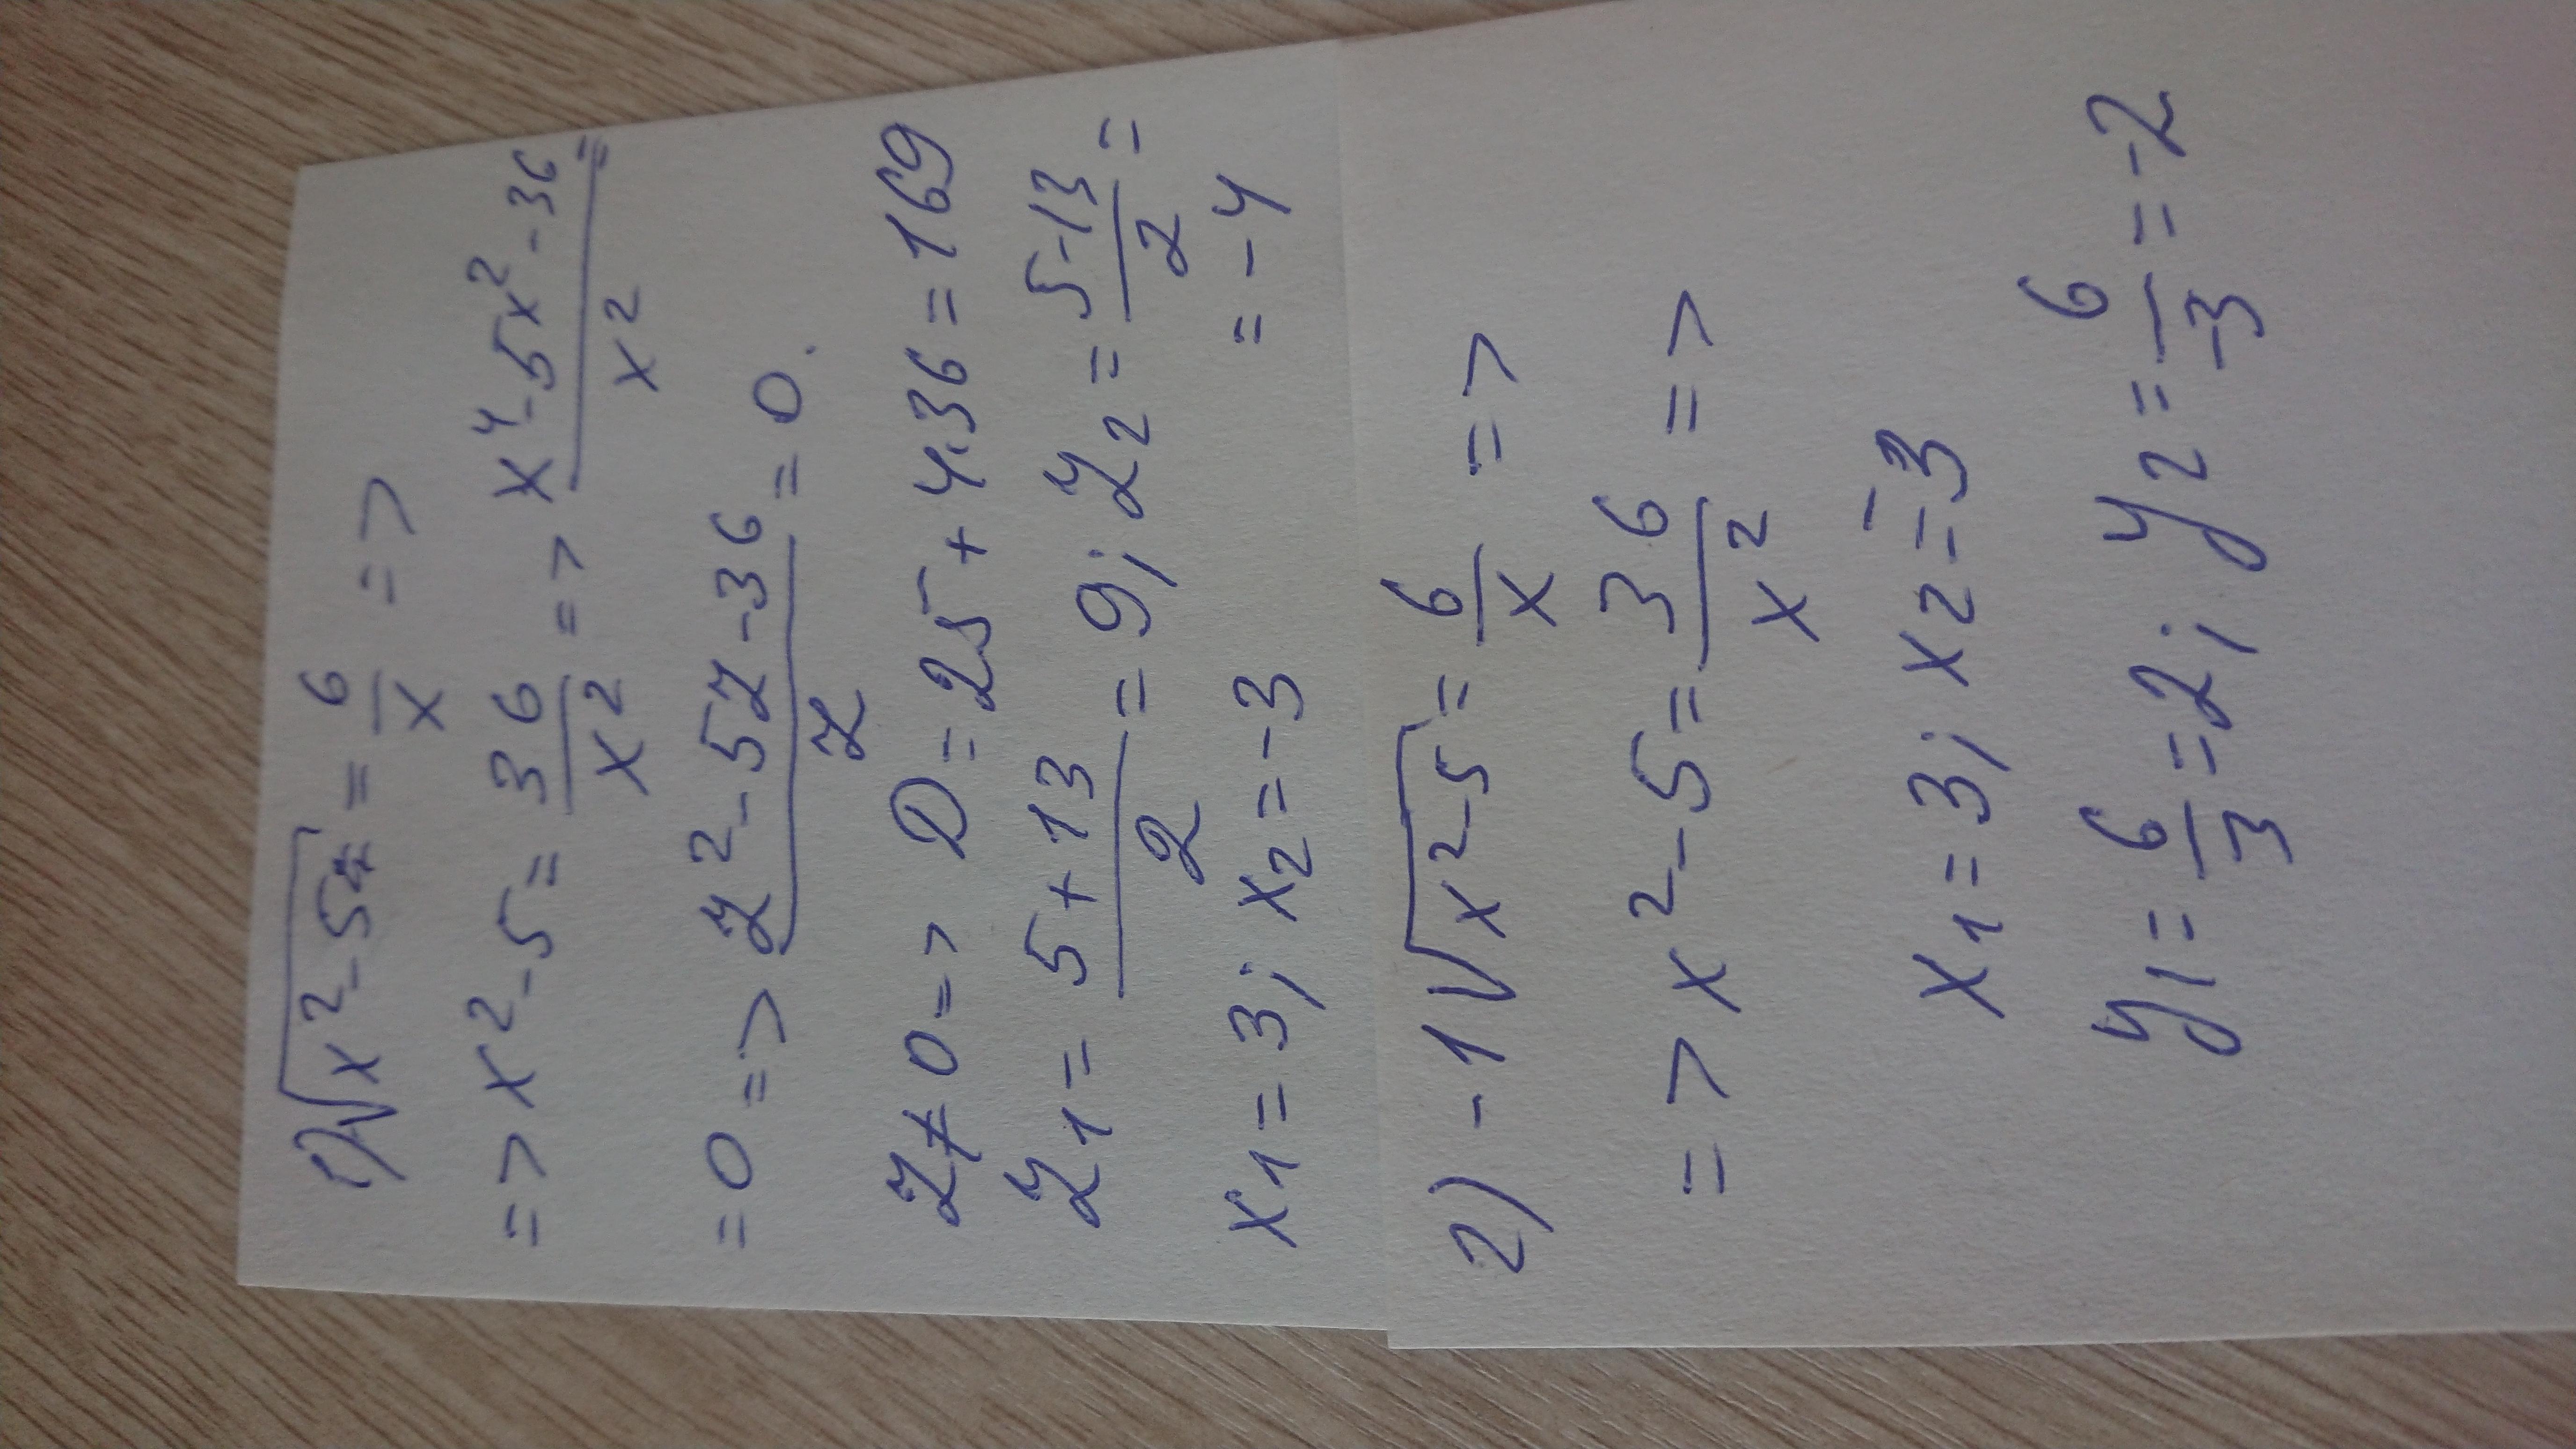 1) √x²-5 = 6/x =>
=> x²-5 = 36/x² => x⁴-5x²-36/x² =
= 0 => z²-5z-36/z = 0.
z≠0 => D = 25 + 4·36 = 169
z₁ = 5+13/2 = 9; z₂ = 5-13/2 =
= -4
x₁ = 3; x₂ = -3
2) -1√x²-5 = 6/x =>
=> x²-5 = 36/x² =>
x₁ = 3; x₂ = -3
y₁ = 6/3 = 2; y₂ = 6/-3 = -2